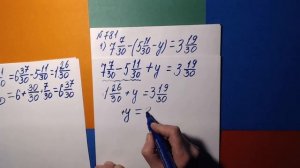 №781
1) 7 7/30 - (5 11/30 - y) = 3 19/30
7 7/30 - 5 11/30 + y = 3 19/30
1 26/30 + y = 3 19/30
+y =
= 6 37/30 - 5 11/30 = 1 26/30
= 6 + 30/30 + 7/30 = 6 37/30